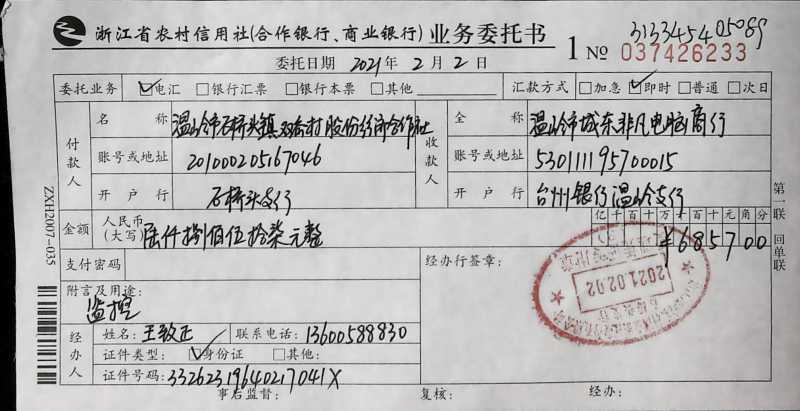 浙江省农村信用社(合作银行、商业银行) 业务委托书
3133454 05089
1 No 037426233
委托日期 2021年 2月 2日
委托业务 ☑电汇 □银行汇票 □银行本票 □其他 汇款方式 □加急 ☑即时 □普通 □次日
付款人 名称 温岭市石桥头镇 村股份经济合作社 收款人 全称 温岭市城东非凡电脑商行
账号或地址 201000205167046 账号或地址 530111195700015
开户行 石桥头支行 开户行 台州银行温岭支行
金额 人民币(大写) 陆仟捌佰伍拾柒元整 亿千百十万千百十元角分 ¥685700
支付密码 经办行签章:
附言及用途:
监控
2021.02.02
经办人 姓名: 王致正 联系电话: 13600588830
证件类型: ☑身份证 □其他:
证件号码: 33262319640217041X
事后监督: 复核: 经办:
第一联 回单联
ZXH2007-035